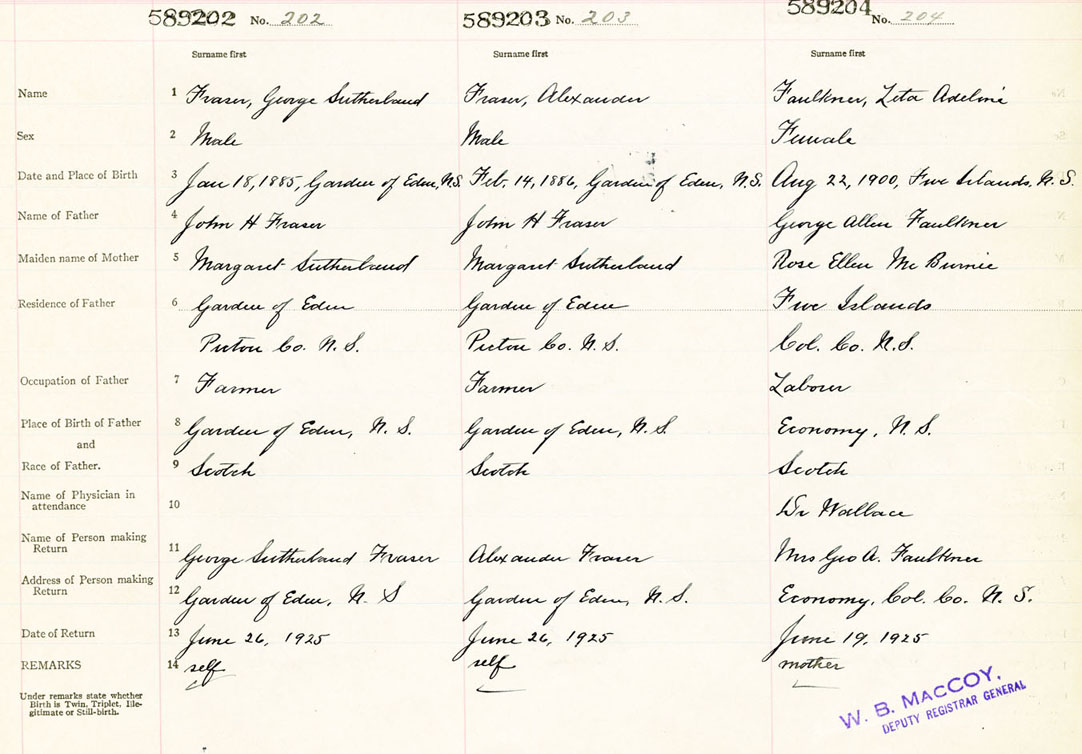 589202 No. 202 589203 No. 203 589204 No. 204
Surname first Surname first Surname first
Name 1 Fraser, George Sutherland Fraser, Alexander Faulkner, Zeta Adeline
Sex 2 Male Male Female
Date and Place of Birth 3 Jan 18, 1885, Garden of Eden, N.S. Feb. 14, 1886, Garden of Eden, N.S. Aug 22, 1900, Five Islands, N.S.
Name of Father 4 John H Fraser John H Fraser George Allen Faulkner
Maiden name of Mother 5 Margaret Sutherland Margaret Sutherland Rose Ellen Mc Burnie
Residence of Father 6 Garden of Eden Garden of Eden Five Islands
Pictou Co. N.S. Pictou Co. N.S. Col. Co. N.S.
Occupation of Father 7 Farmer Farmer Labour
Place of Birth of Father 8 Garden of Eden, N.S. Garden of Eden, N.S. Economy, N.S.
and
Race of Father. 9 Scotch Scotch Scotch
Name of Physician in
attendance 10 Dr Wallace
Name of Person making
Return 11 George Sutherland Fraser Alexander Fraser Mrs Geo A. Faulkner
Address of Person making
Return 12 Garden of Eden, N.S Garden of Eden, N.S. Economy, Col. Co. N.S.
Date of Return 13 June 26, 1925 June 26, 1925 June 19, 1925
REMARKS 14 self self mother
Under remarks state whether
Birth is Twin, Triplet, Ille-
gitimate or Still-birth.
W. B. MACCOY,
DEPUTY REGISTRAR GENERAL